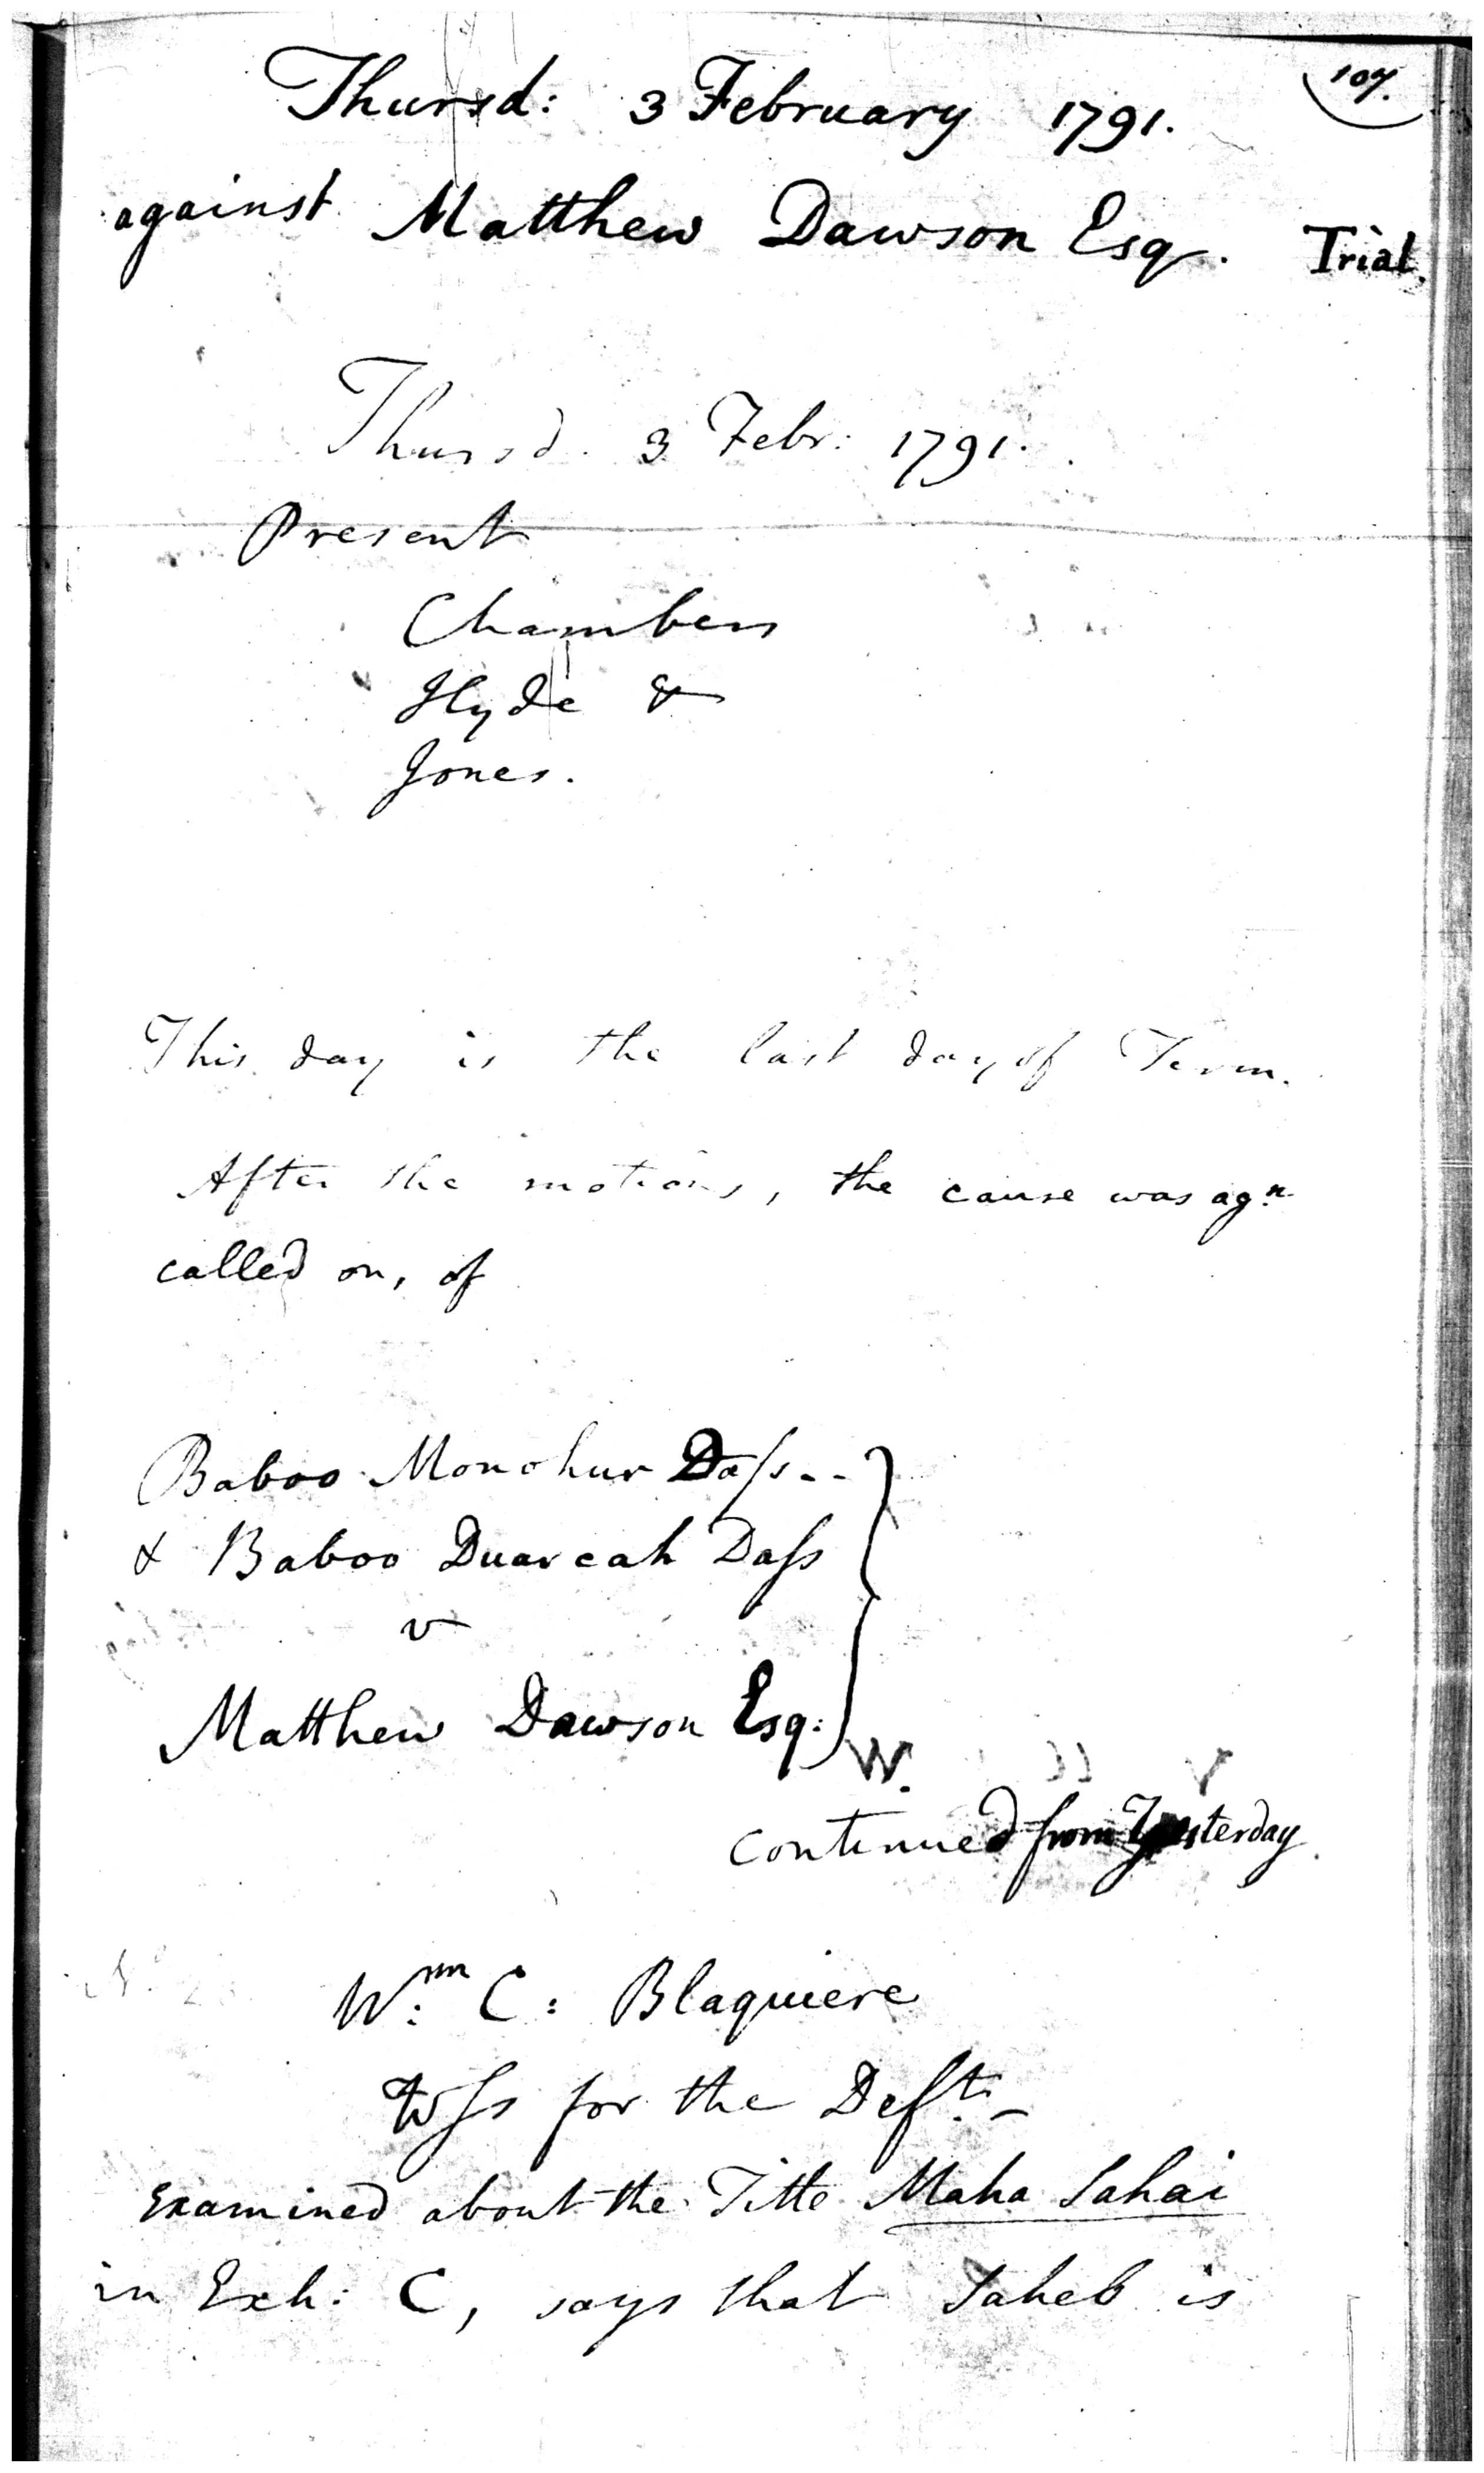 107.
Thursd: 3 February 1791.
against Matthew Dawson Esq. Trial.
Thursd. 3 Febr: 1791.
Present
Chambers
Hyde &
Jones.
This day is the last day of Term.
After the motions, the cause was agn.
called on, of
Baboo Monohur Dass--
& Baboo Duarcah Dass
v
Matthew Dawson Esq:
W.
continued from Yesterday.
Wm: C: Blaquiere
Wss for the Deft.-
examined about the Title Maha Sahai
in Exh: C, says that Saheb is